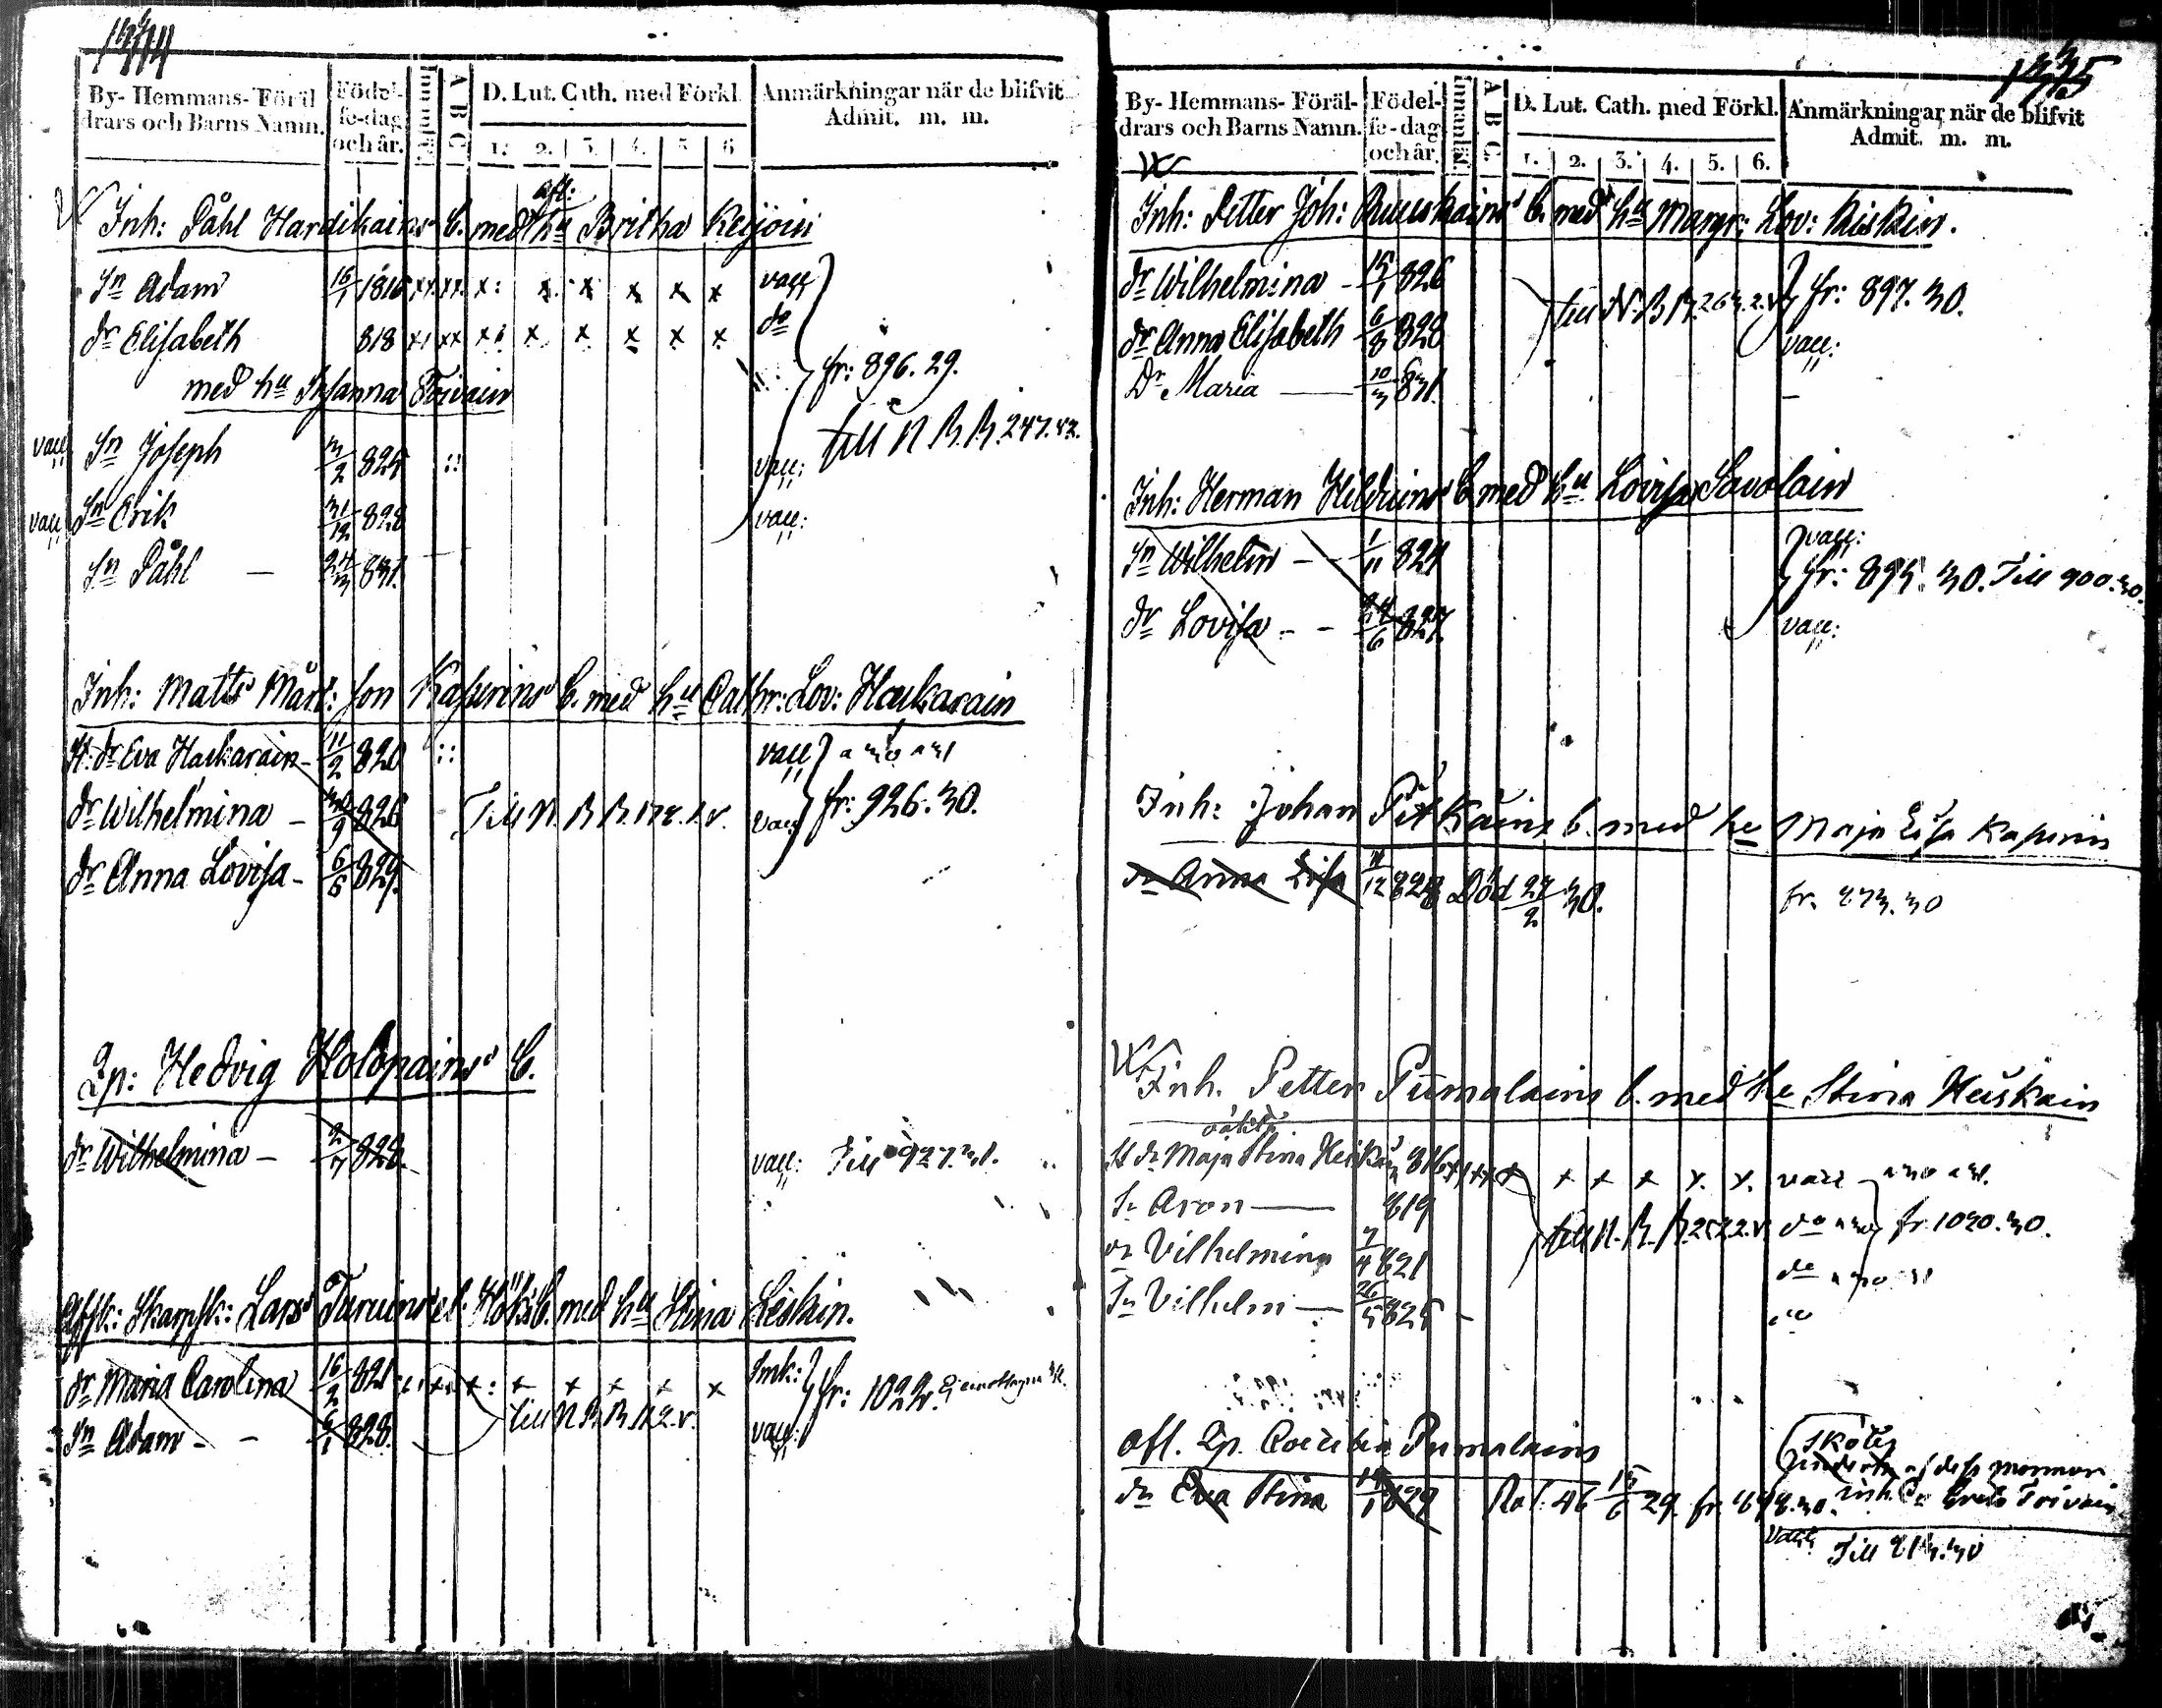 By- Hemmans- Föräl
drars och Barns Namn.
Födel-
se-dag
och år.
A B C
D. Lut. Cath. med Förkl.
1. 2. 3. 4. 5 6
Anmärkningar när de blifvit
Admit. m. m.
afl:
Inh: Påhl Hardikains b. med hu Britha Reijoin
Sn Adam 16/1 1816 x x x x x x vacc
dr Elisabeth 818 x x x x x x do
med hu Susanna Toivain
fr: 896. 29.
till N. B. B. 247. v2.
vacc Sn Joseph 3/2 825 :: vacc:
vacc Sn Erik 31/12 828 vacc:
Sn Påhl — 24/3 831.
Inh: Matts Mårt: son Kaperins b. med hu Cathr: Lov: Haukarain
H: dr Eva Haukarain 11/2 820 :: vacc
dr Wilhelmina 30/9 826 Till N. B. B. vacc fr: 926. 30.
dr Anna Lovisa 6/6 829.
Lp: Hedvig Holopains b.
dr Wilhelmina — 2/7 828. vacc: Till 927. 31.
Afsk: Skarpsk: Lars Turuins el. Hök b. med hu Stina Leskin.
dr Maria Carolina 16/2 821 x x x x x x Smk: fr: 1022.
till N B B
Sn Adam - - 6/1 828. vacc:
1335
By- Hemmans- Föräl-
drars och Barns Namn.
Födel-
se-dag
och år.
Innanläs.
A B C
D. Lut. Cath. med Förkl.
1. 2. 3. 4. 5. 6.
Anmärkningar när de blifvit
Admit. m. m.
Inh: Petter Joh: Ruuskains b. med hu Margr: Lov: Kiskin.
dr Wilhelmina - 15/1 826 till N. B. B. 263. 2. v. fr: 897. 30.
dr Anna Elisabeth 6/8 828 vacc:
Dr Maria — 10/3 831. —
Inh: Herman Hilduins b. med hu Lovisa Savolain
Sn Wilhelm - 1/11 824 vacc:
fr: 895. 30. Till 900. 30.
dr Lovisa - - 24/6 827. vacc:
Inh: Johan Pitkäins b. med hu Maja Lisa Kaperin
dr Anna Lisa 11/12 828 Död 27/2 30. fr. 273. 30
Inh. Petter Pumalains b. med hu Stina Heiskain
oäkta
H dr Maja Stina Heiskain 816 x x x x x vacc
Sn Aron — 819 till N. B. B. do fr 1030. 30.
dr Vilhelmina 7/4 821 do
Sn Vilhelm — 26/5 825 -
Afl. Lp. Coecilia Pumalains
Skötes
af dess mormor
dr Eva Stina 14/1 829 Rot. 46 15/6 29. fr. 698. 30. inh. Greta Toivain
vacc Till 213. 30